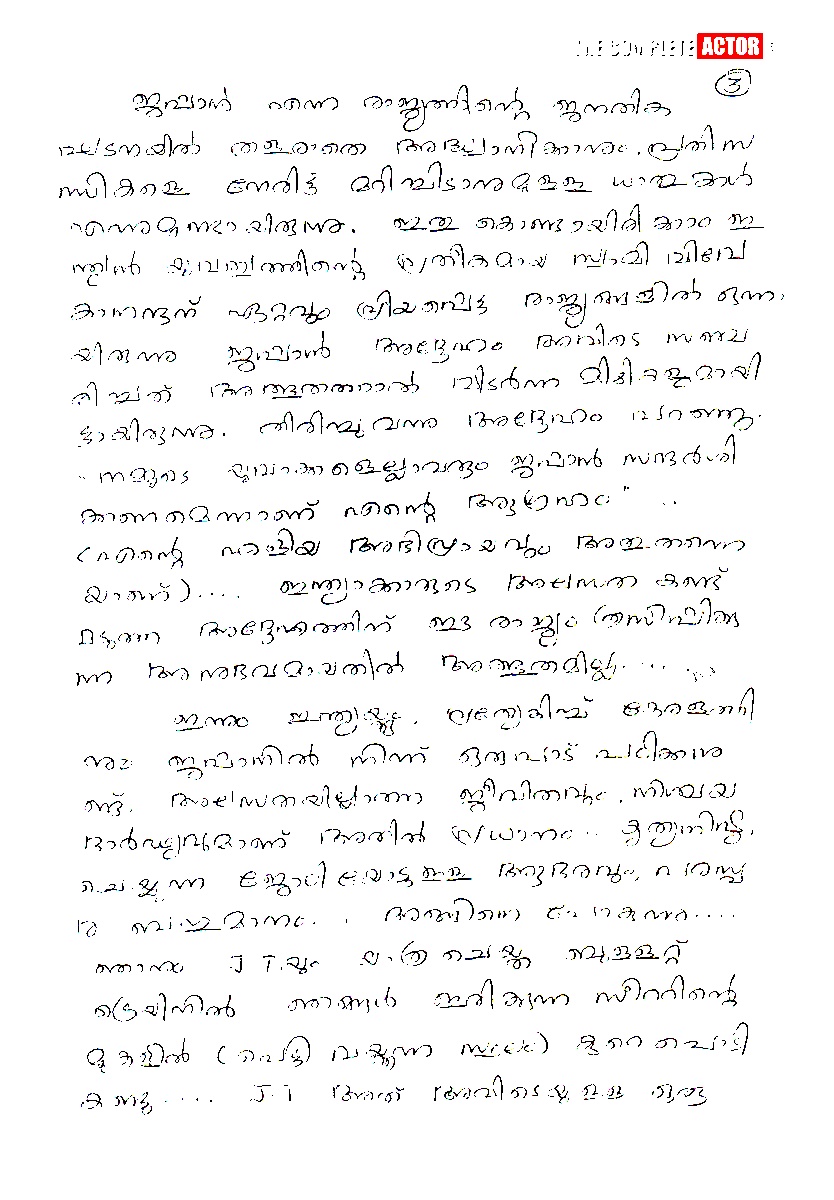 THE COMPLETE ACTOR
3
ജപ്പാൻ എന്ന രാജ്യത്തിന്റെ ജനതിക
ഘടനയിൽ തളരാതെ അദ്ധ്വാനിക്കാനും, പ്രതിസ
ന്ധികളെ നേരിട്ട് മറികടക്കാനുമുള്ള
എന്നുമുണ്ടായിരുന്നു. ഇതു കൊണ്ടായിരിക്കാം ഇ
ന്ത്യൻ യുവത്വത്തിന്റെ പ്രതീകമായ സ്വാമി വിവേ
കാനന്ദന് ഏറ്റവും പ്രിയപ്പെട്ട രാജ്യങ്ങളിൽ ഒന്നാ
യിരുന്നു ജപ്പാൻ അദ്ദേഹം അവിടെ സഞ്ച
രിച്ചത് അത്ഭുതത്താൽ വിടർന്ന മിഴികളുമായി
ട്ടായിരുന്നു. തിരിച്ചുവന്ന അദ്ദേഹം പറഞ്ഞു.
"നമ്മുടെ യുവാക്കളെല്ലാവരും ജപ്പാൻ സന്ദർശി
ക്കണമെന്നാണ് എന്റെ ആഗ്രഹം" ..
(എന്റെ എളിയ അഭിപ്രായവും അതുതന്നെ
യാണ്).... ഇന്ത്യാക്കാരുടെ അലസത കണ്ട്
മടുത്ത അദ്ദേഹത്തിന് ഈ രാജ്യം ത്രസിപ്പിക്കു
ന്ന അനുഭവമായതിൽ അത്ഭുതമില്ല......
ഇന്നും ഇന്ത്യയ്ക്കും, പ്രത്യേകിച്ച് കേരളത്തി
നും ജപ്പാനിൽ നിന്ന് ഒരുപാട് പഠിക്കാനു
ണ്ട്. അലസതയില്ലാത്ത ജീവിതവും, നിശ്ചയ
ദാർഢ്യവുമാണ് അതിൽ പ്രധാനം.. കൃത്യനിഷ്ഠ,
ചെയ്യുന്ന ജോലിയോടുള്ള ആദരവും, പരസ്പ
ര ബഹുമാനം.. അങ്ങിനെ പോകുന്നു....
ഞാനും J.T.യും യാത്ര ചെയ്ത ബുള്ളറ്റ്
ട്രെയിനിൽ ഞങ്ങൾ ഇരിക്കുന്ന സീറ്റിന്റെ
മുകളിൽ (പെട്ടി വയ്ക്കുന്ന സ്ഥലം) കുറെ പൊടി
കണ്ടു.... J.T അത് അവിടെയുള്ള ഒരു